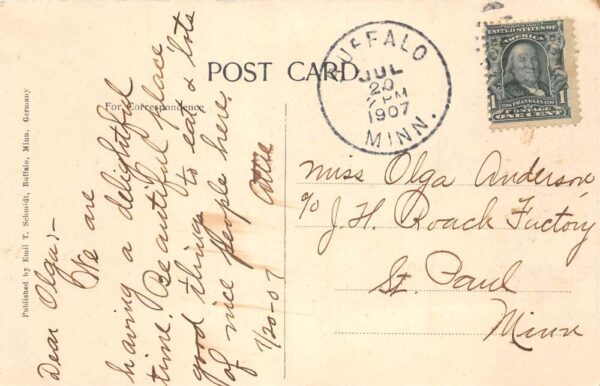 POST CARD
For Correspondence
Published by Emil T. Schmidt, Buffalo, Minn. Germany
BUFFALO
JUL
20
7 PM
1907
MINN.
UNITED STATES OF
AMERICA
1706 FRANKLIN 1790
1 POSTAGE 1
ONE CENT
Dear Olga:-
We are
having a delightful
time. Beautiful place
good things to eat & lots
of nice people here.
7/20-07
Miss Olga Anderson,
c/o J. H. Roach Factory
St. Paul
Minn